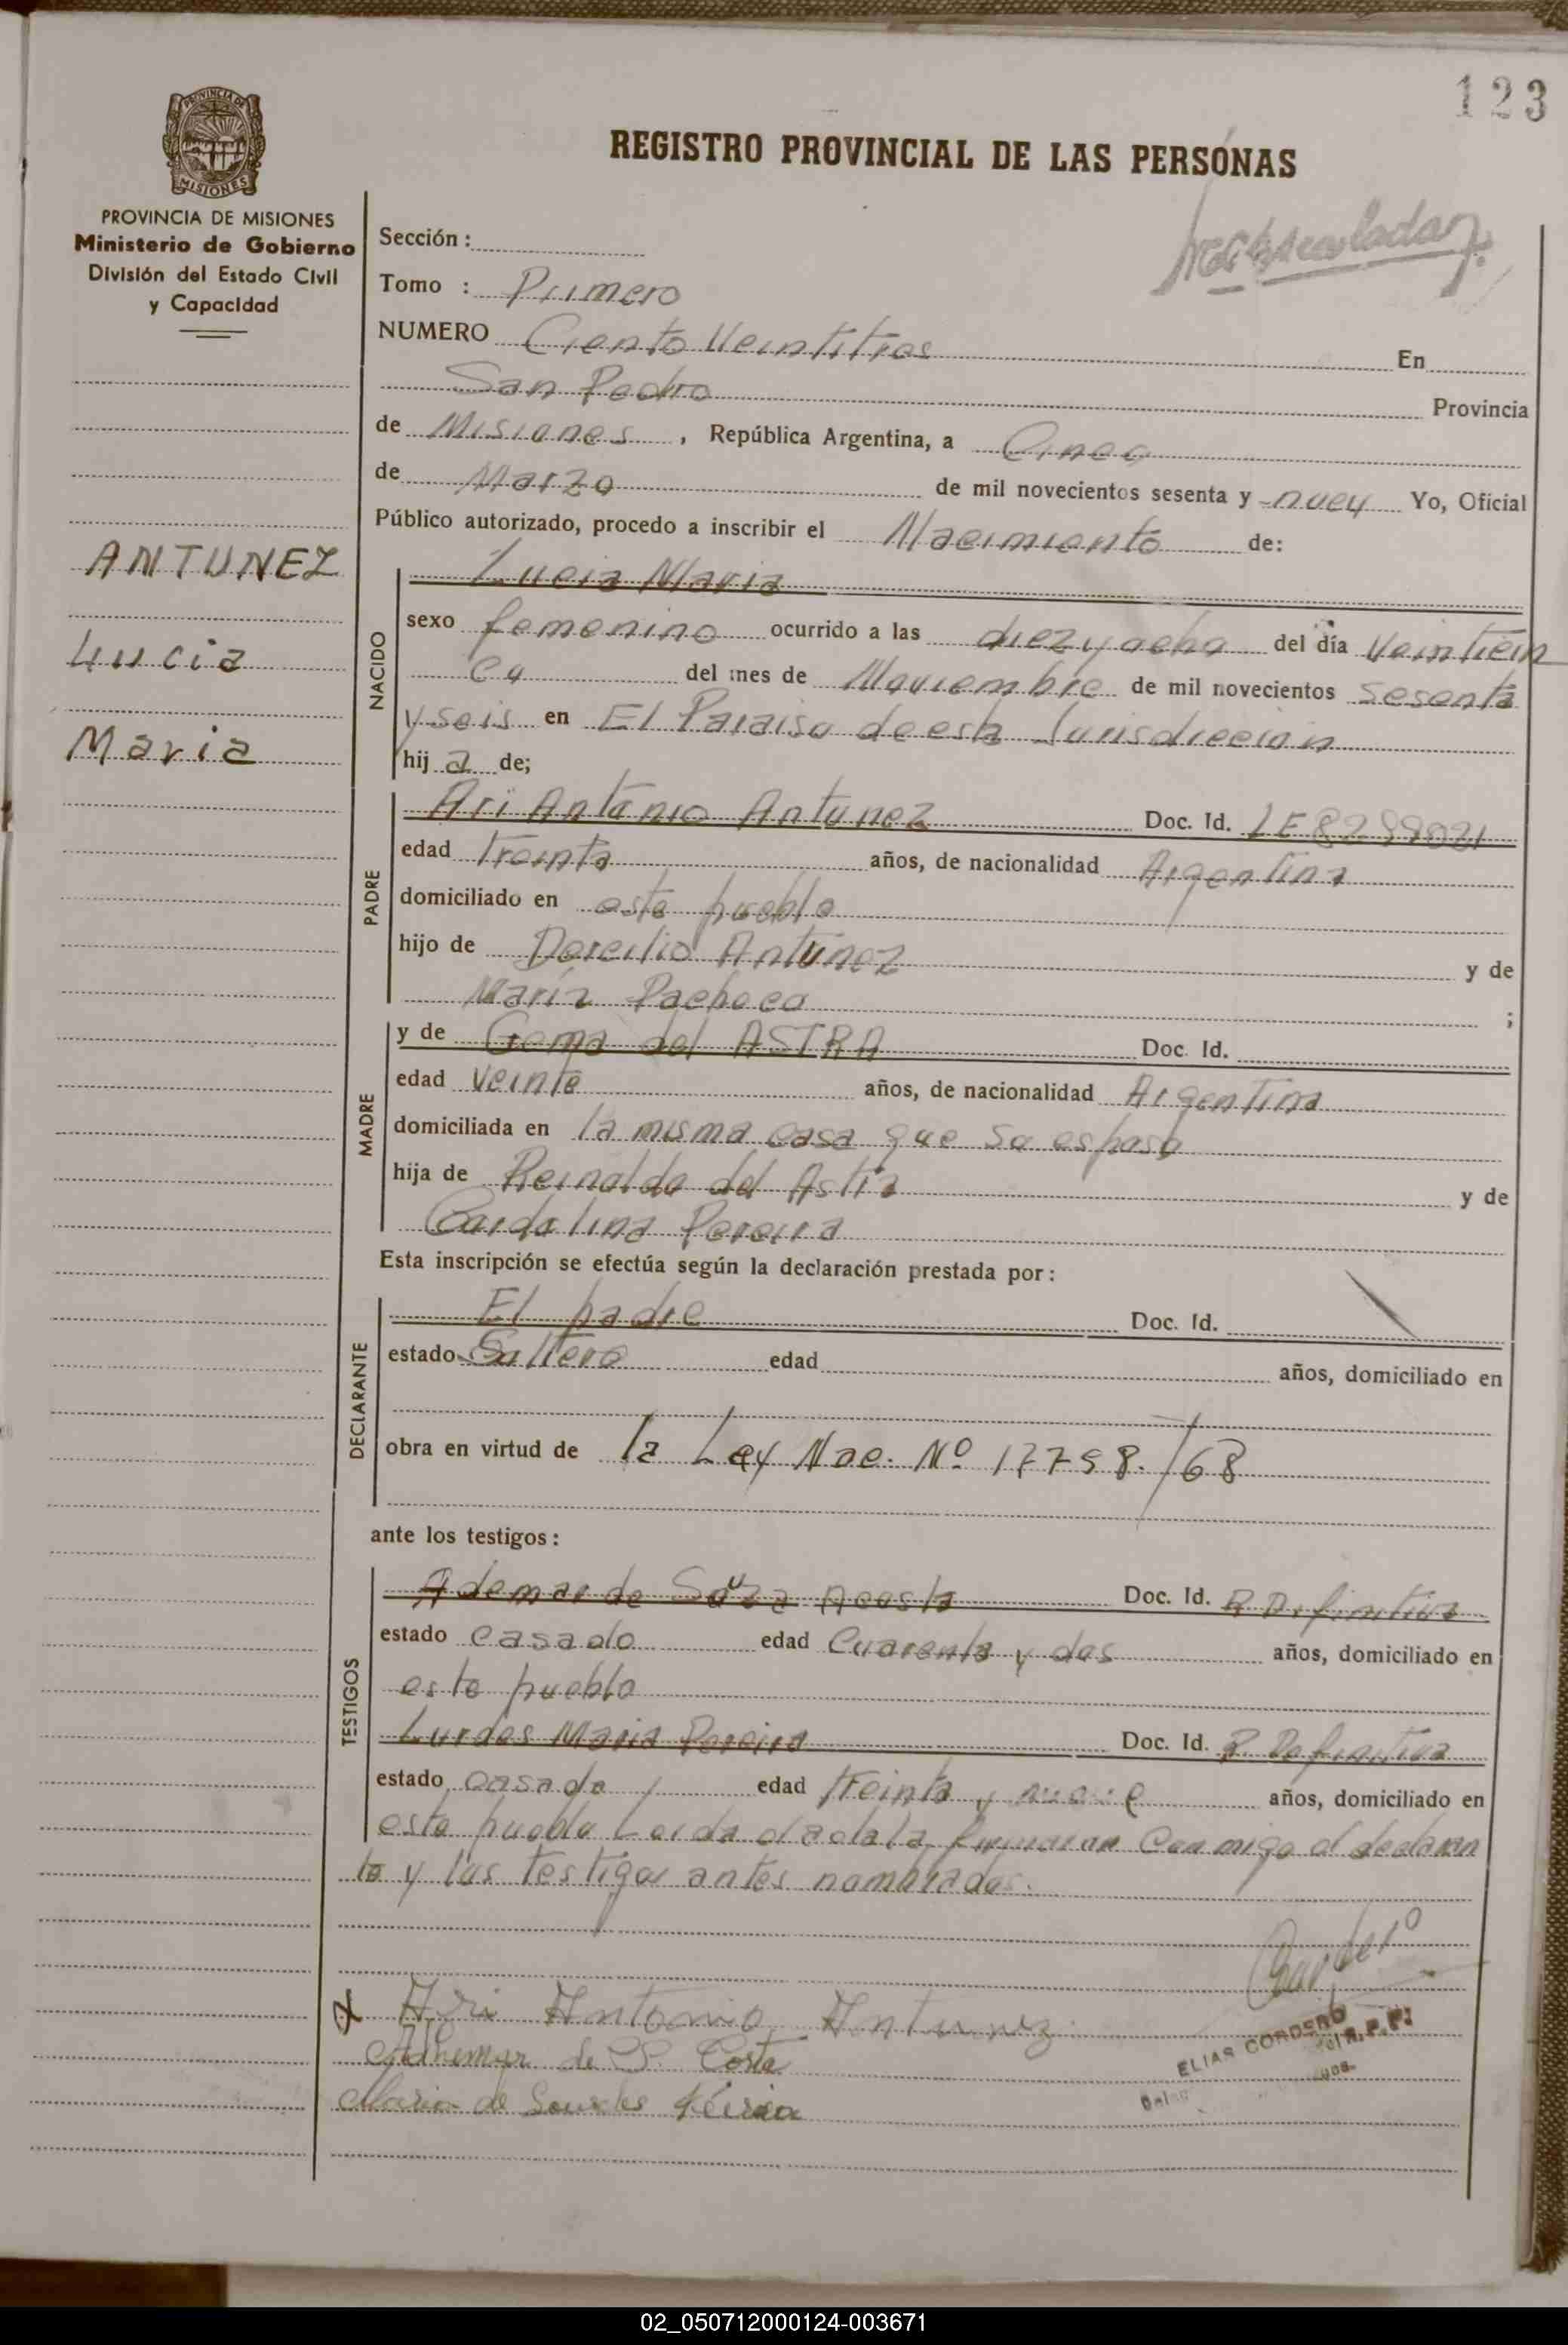 123
REGISTRO PROVINCIAL DE LAS PERSONAS
PROVINCIA DE MISIONES
MISIONES
PROVINCIA DE MISIONES
Ministerio de Gobierno
División del Estado Civil
y Capacidad
ANTUNEZ
Lucia
Maria
Sección:
Tomo : Primero
NUMERO Ciento Veintitres En
San Pedro Provincia
de Misiones, República Argentina, a Cinco
de Marzo de mil novecientos sesenta y nuev Yo, Oficial
Público autorizado, procedo a inscribir el Nacimiento de:
NACIDO
Lucia Maria
sexo femenino ocurrido a las diez y ocho del día Veinticin
co del mes de Noviembre de mil novecientos sesenta
y seis en El Paraiso de esta Jurisdiccion
hij a de;
PADRE
Ari Antonio Antunez Doc. Id. LE 8299021
edad treinta años, de nacionalidad Argentina
domiciliado en este pueblo
hijo de Dorcilio Antunez y de
Maria Pacheco ;
MADRE
y de Gema del ASTRA Doc. Id.
edad Veinte años, de nacionalidad Argentina
domiciliada en la misma casa que su esposo
hija de Reinaldo del Astra y de
Cardolina Pereira
Esta inscripción se efectúa según la declaración prestada por:
DECLARANTE
El padre Doc. Id.
estado Soltero edad años, domiciliado en
obra en virtud de la Ley Nac. Nº 17798./68
ante los testigos:
TESTIGOS
Ademar de Souza Acosta Doc. Id. R Definitiva
estado casado edad Cuarenta y dos años, domiciliado en
este pueblo
Lurdes Maria Pereira Doc. Id. R Definitiva
estado casada edad treinta y nueve años, domiciliado en
este pueblo Leida el acta la firmaran conmigo el declaran
te y los testigos antes nombrados.
Ari Antonio Antunez
Adhemar de S. Costa
Maria de Lourdes
ELIAS CORDERO
02_050712000124-003671